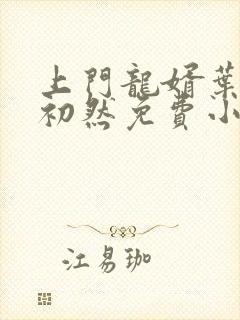 上門龍婿葉
初然免費小
江易珈